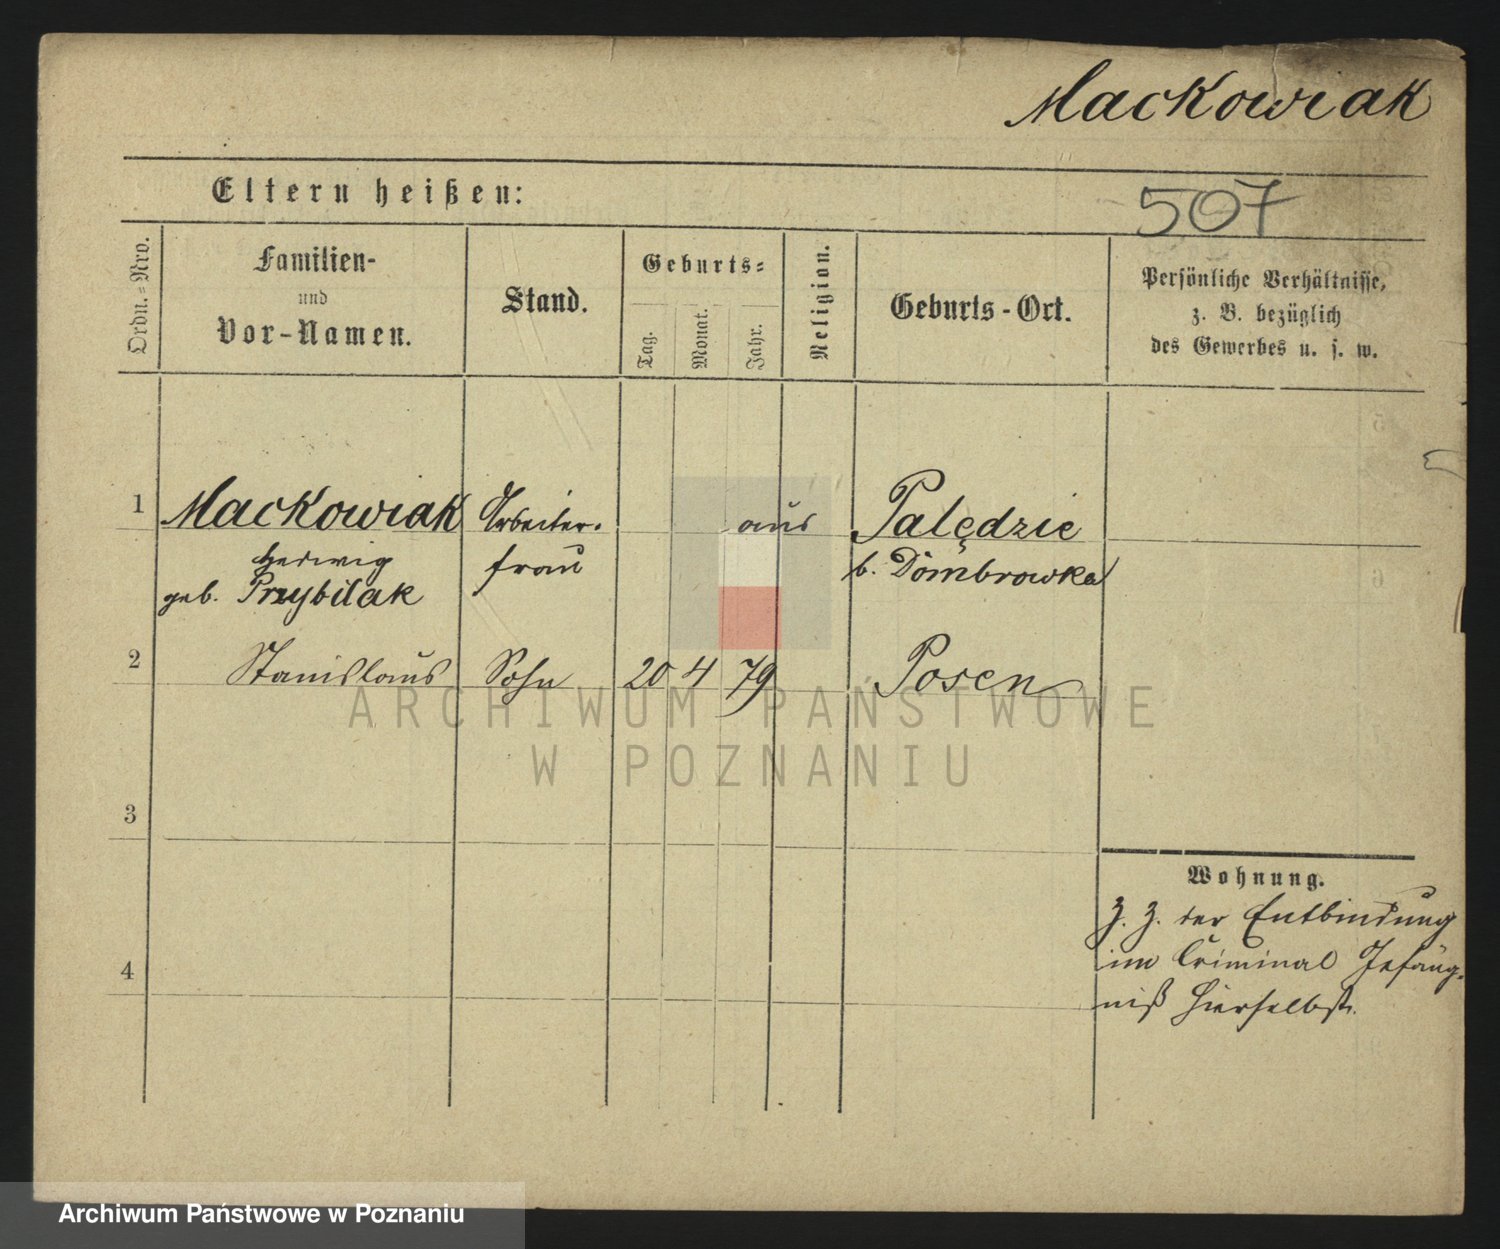 Mackowiak
Eltern heißen:
507
Ordn.-Nro.
Familien-
und
Vor-Namen.
Stand.
Geburts-
Tag.
Monat.
Jahr.
Religion.
Geburts-Ort.
Persönliche Verhältnisse,
z. B. bezüglich
des Gewerbes u. s. w.
1 Mackowiak Arbeiter- aus Palędzie
Hedwig frau b. Dombrowka
geb. Przybilak
2 Stanislaus Sohn 20 4 79 Posen
3
4
Wohnung.
z. Z. der Entbindung
im Criminal Gefäng-
niß hierselbst.
ARCHIWUM PAŃSTWOWE
W POZNANIU
Archiwum Państwowe w Poznaniu